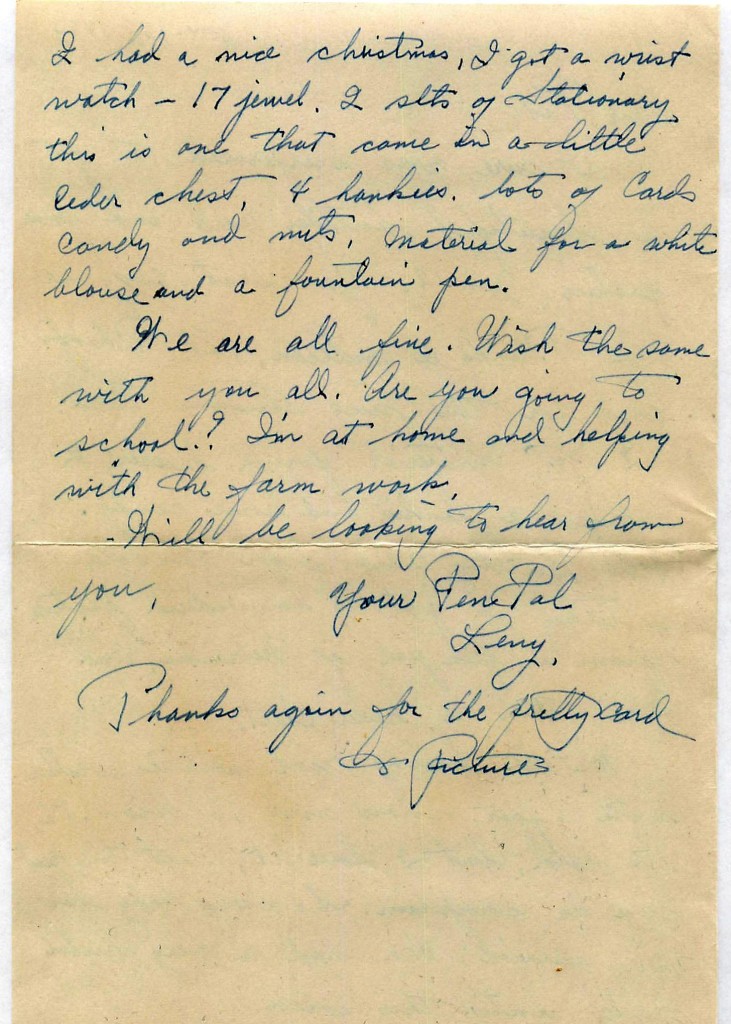 I had a nice christmas, I got a wrist
watch - 17 jewel. 2 sets of Stationary
this is one that came in a little
Ceder chest, 4 hankies. lots of Cards
Candy and nuts, material for a white
blouse and a fountain pen.
We are all fine. Wish the same
with you all. Are you going to
school? I'm at home and helping
with the farm work.
- Will be looking to hear from
you,
Your Pene Pal
Leny.
Thanks again for the pretty card
& Pictures